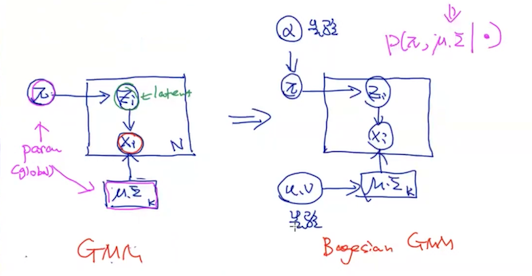 π
Zi
←latent
xi
N
param
(global)
μ.Σ k
GMM
⇒
α
π
Zi
xi
u.v
μ.Σ k
p(π, μ.Σ | •)
Bayesian GMM